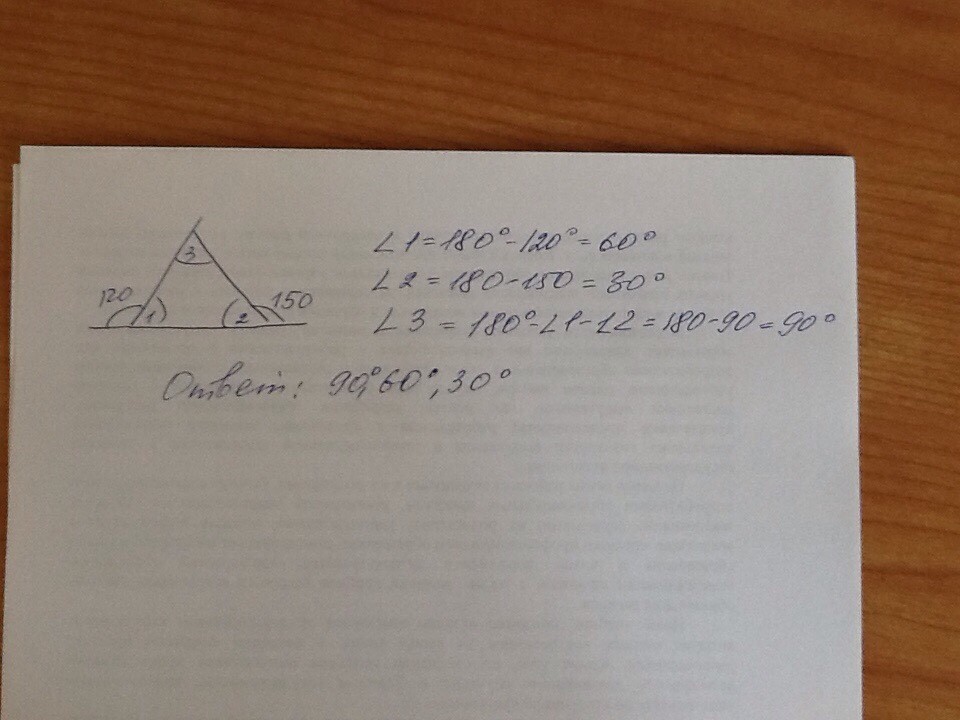 3
120
1
2
150
∠1 = 180° - 120° = 60°
∠2 = 180 - 150 = 30°
∠3 = 180° - ∠1 - ∠2 = 180 - 90 = 90°
Ответ: 90°, 60°, 30°